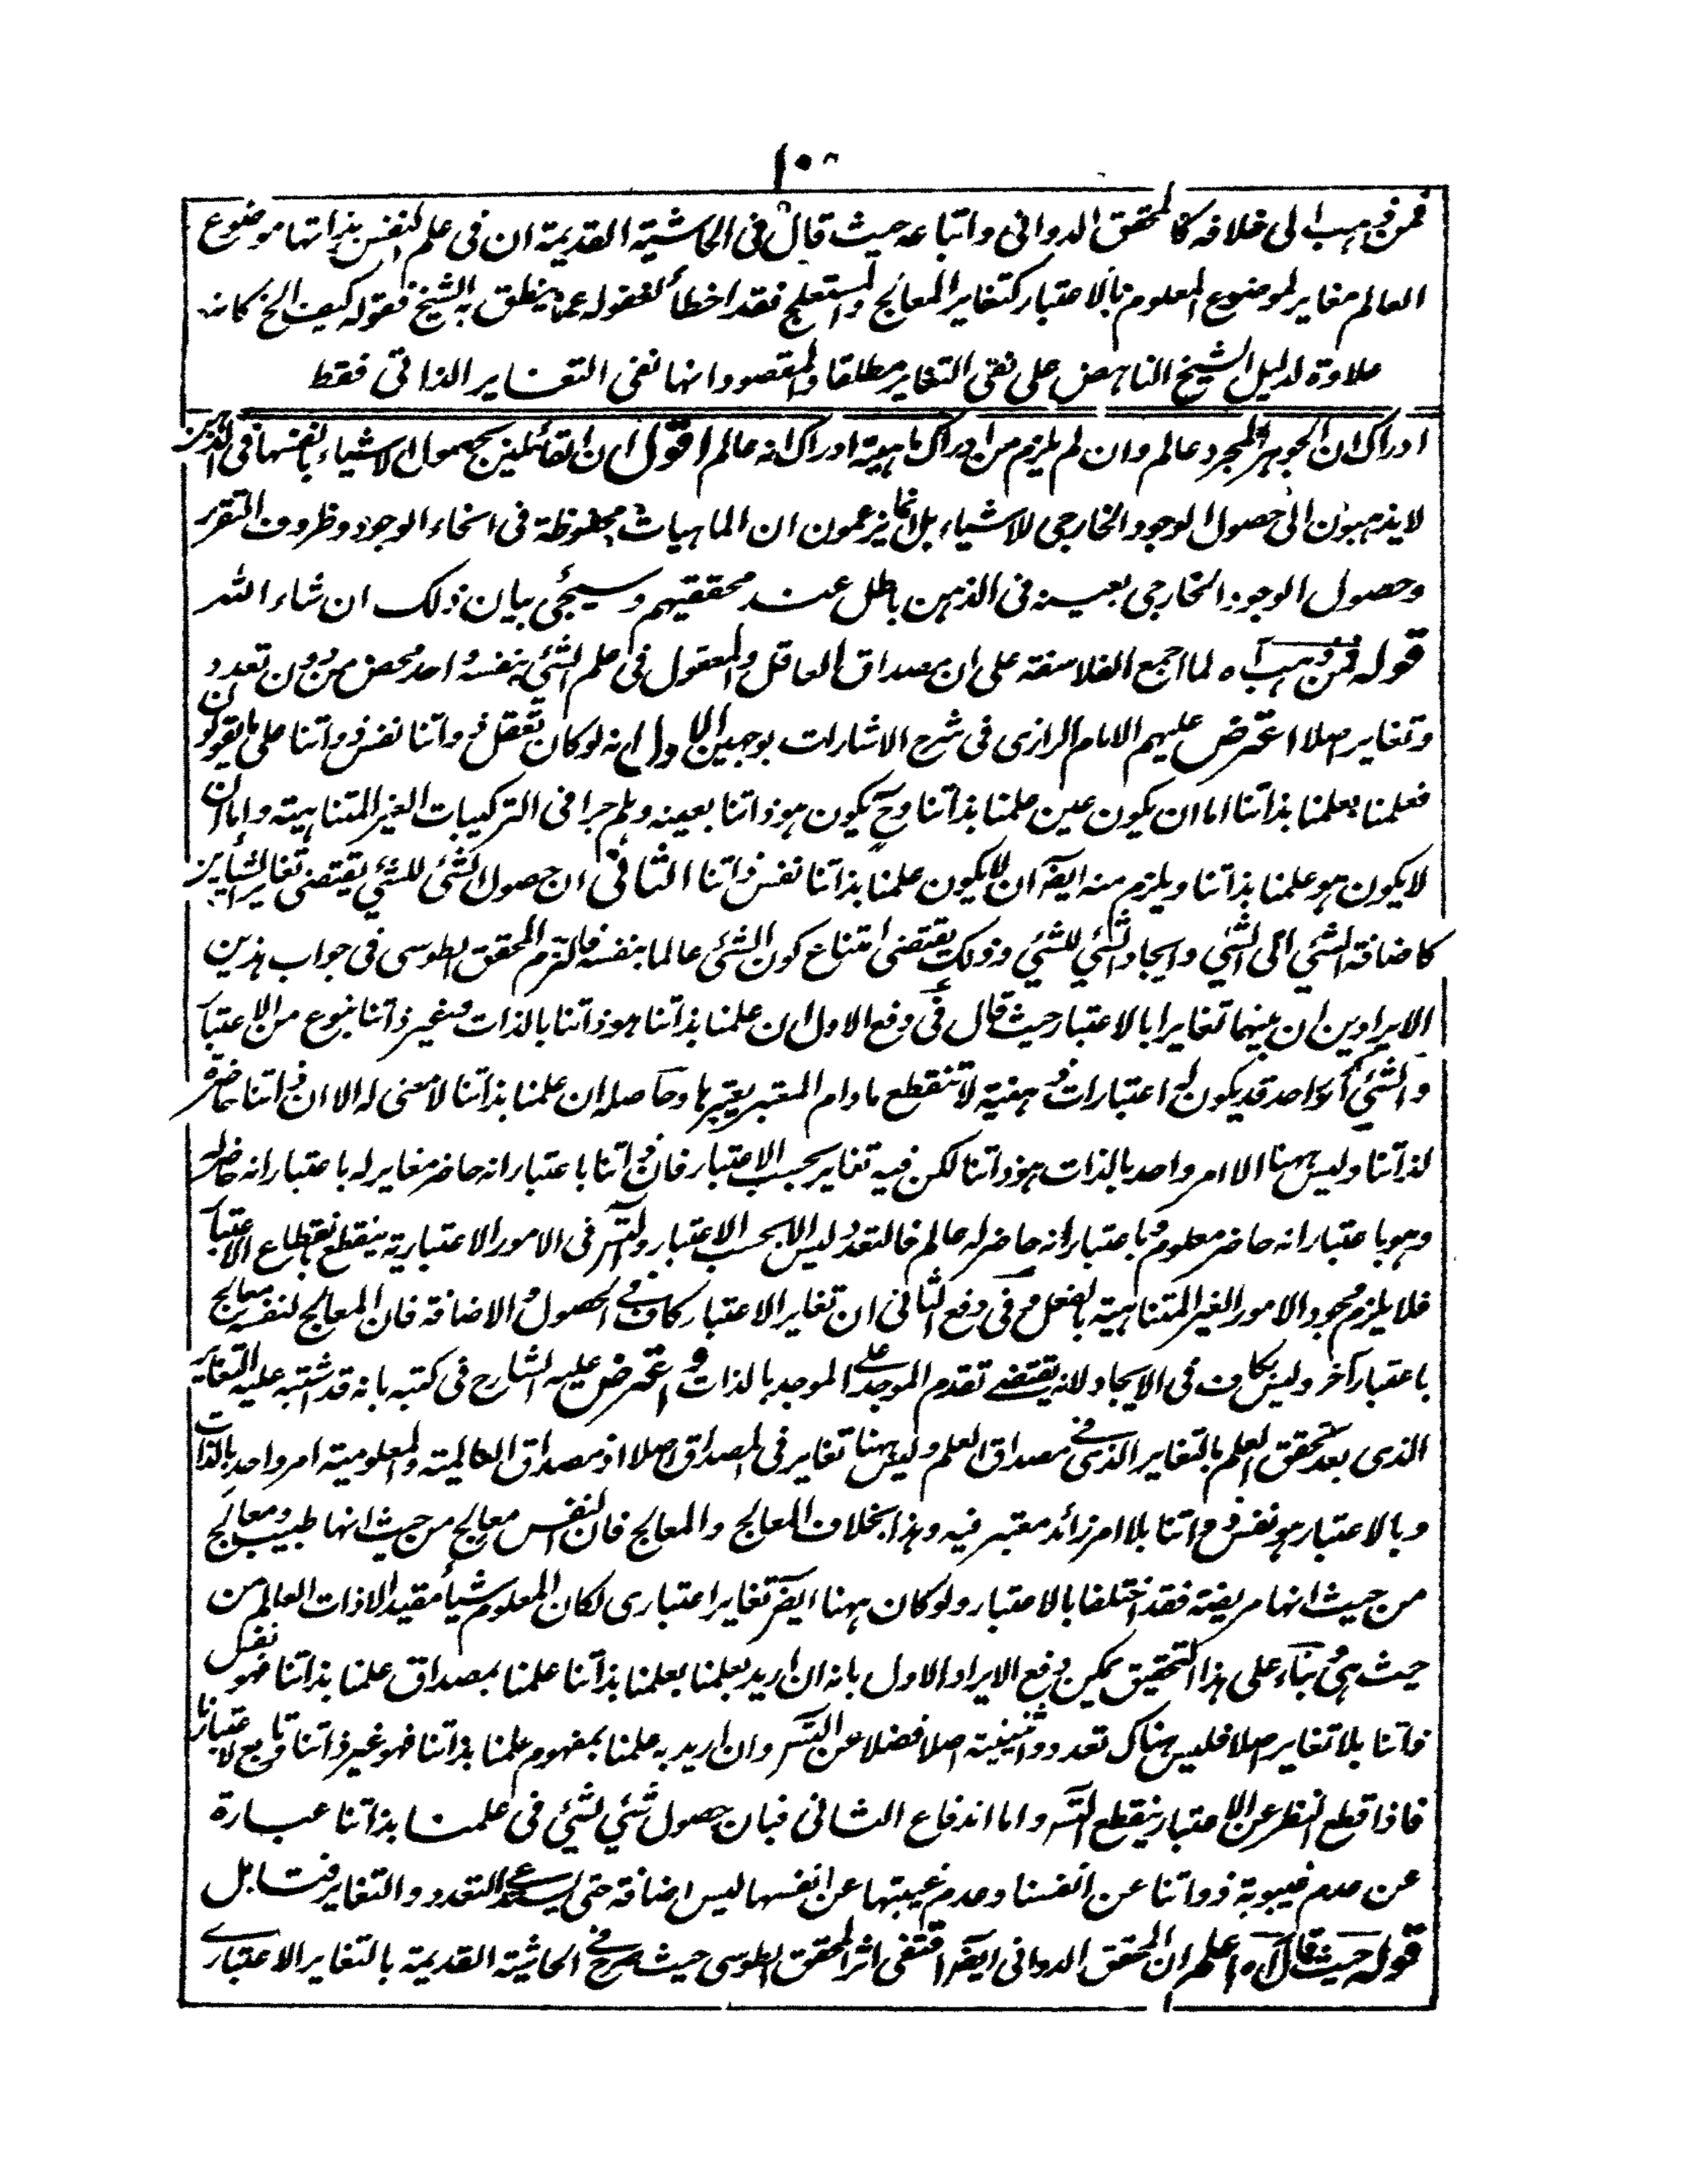 ١٠٨
فمن ذهب الى خلافه كالمحقق الدوانى واتباعه حيث قال فى الحاشية القديمة ان فى علم النفس بذاتها موضوع
العالم مغاير لموضوع المعلوم بالاعتبار كتغاير المعالج والمستعلج فقد اخطأ لغفوله عما ينطق به الشيخ فقوله كيف الخ كانه
علاوة لدليل الشيخ الناهض على نفى التغاير مطلقا والمقصود انها نفى التغاير الذاتى فقط
ادراك ان الجوهر المجرد عالم وان لم يلزم من ادراك ماهية ادراك انه عالم اقول ان القائلين بحصول الاشياء بانفسها فى الذهن
لا يذهبون الى حصول الوجود الخارجى للاشياء بل انما يزعمون ان الماهيات محفوظة فى انحاء الوجود وظروف التقرر
وحصول الوجود الخارجى بعينه فى الذهن باطل عند محققيهم وسيجئى بيان ذلك ان شاء الله
قوله فمن ذهب آه لما اجمع الفلاسفة على ان مصداق العاقل والمعقول فى علم الشئ بنفسه واحد محض من دون تعدد
وتغاير اصلا اعترض عليهم الامام الرازى فى شرح الاشارات بوجهين الاول انه لو كان تعقل ذواتنا نفس ذواتنا على ما يقولون
فعلمنا بعلمنا بذاتنا اما ان يكون عين علمنا بذاتنا وح يكون هو ذاتنا بعينه وهلم جرا فى التركيبات الغير المتناهية واما ان
لا يكون هو علمنا بذاتنا ويلزم منه ايضا ان لا يكون علمنا بذاتنا نفس ذاتنا الثانى ان حصول الشئ للشئ يقتضى تغاير الشيئين
كاضافة الشئ الى الشئ وايجاد الشئ للشئ وذلك يقتضى امتناع كون الشئ عالما بنفسه فالتزم المحقق الطوسى فى جواب هذين
الايرادين ان بينهما تغايرا بالاعتبار حيث قال فى دفع الاول ان علمنا بذاتنا هو ذاتنا بالذات وغير ذاتنا بنوع من الاعتبار
والشئ الواحد قد يكون له اعتبارات ذهنية لا تنقطع مادام المعتبر يعتبرها وحاصله ان علمنا بذاتنا لا معنى له الا ان ذاتنا حاضرة
لذاتنا وليس ههنا الا امر واحد بالذات هو ذاتنا لكن فيه تغاير بحسب الاعتبار فان ذاتنا باعتبار انه حاضر مغاير له باعتبار انه حاضر له
وهو باعتبار انه حاضر معلوم وباعتبار انه حاضر له عالم فالتعدد ليس الا بحسب الاعتبار والتس فى الامور الاعتبارية ينقطع بانقطاع الاعتبار
فلا يلزم وجود الامور الغير المتناهية بالفعل وفى دفع الثانى ان تغاير الاعتبار كاف فى الحصول والاضافة فان المعالج لنفسه معالج
باعتبار آخر وليس بكاف فى الايجاد لانه يقتضى تقدم الموجد على الموجد بالذات واعترض عليه الشارح فى كتبه بانه قد اشتبه عليه التغاير
الذى بعد تحقق العلم بالتغاير الذى فى مصداق العلم وليس ههنا تغاير فى المصداق اصلا اذ مصداق العالمية والمعلومية امر واحد بالذات
وبالاعتبار هو نفس ذاتنا بلا امر زائد معتبر فيه وهذا بخلاف المعالج والمعالج فان النفس معالج من حيث انها طبيب ومعالج
من حيث انها مريضة فقد اختلفا بالاعتبار ولو كان ههنا ايضا تغاير اعتبارى لكان المعلوم شيأ مقيدا لا ذات العالم من
حيث هى بناء على هذا التحقيق يمكن دفع الايراد الاول بانه ان اريد بعلمنا بعلمنا بذاتنا علمنا بمصداق علمنا بذاتنا فهو نفس
ذاتنا بلا تغاير اصلا فليس هناك تعدد واثنينية اصلا فضلا عن التس وان اريد به علمنا بمفهوم علمنا بذاتنا فهو غير ذاتنا وتابع لاعتبارنا
فاذا قطع النظر عن الاعتبار ينقطع التس واما اندفاع الثانى فبان حصول شئ لشئ فى علمنا بذاتنا عبارة
عن عدم غيبوبة ذواتنا عن انفسنا وعدم غيبتها عن انفسها ليس اضافة حتى يستدعى التعدد والتغاير فتامل
قوله حيث قال آه اعلم ان المحقق الدوانى ايضا اقتفى اثر المحقق الطوسى حيث صرح فى الحاشية القديمة بالتغاير الاعتبارى